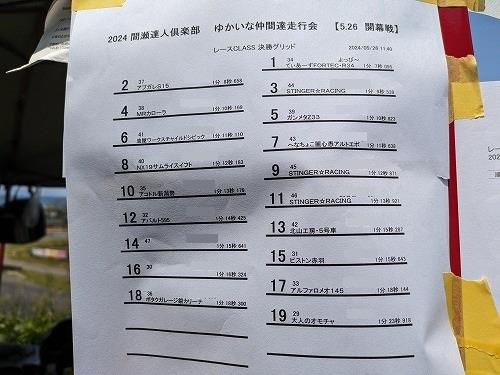 2024 間瀬達人倶楽部　ゆかいな仲間達走行会　【5.26 開幕戦】
レースCLASS 決勝グリッド
2024/05/26 11:40
1 34 よっぴ～
てぃあーずFORTEC-R34 1分 7秒
2 37 アブガレS15 1分 8秒 658
3 44 STINGER☆RACING 1分 9秒
4 38 MRカローラ 1分 10秒 169
5 39 ガンメタZ33 1分 10秒 823
6 41 1分 11秒 110
7 43 へなちょこ 1分 11秒 638
8 40 NX19サムライスイフト 1分 12秒 163
9 45 STINGER☆RACING 1分 12秒 971
10 35 アコトル新潟勢 1分 13秒 179
11 46 STINGER☆RACING 1分 13秒 921
12 32 アバルト595 1分 14秒 425
13 42 北山工房・5号車 1分 15秒 287
14 47 1分 15秒 641
15 31 ピストン赤羽 1分 15秒 643
16 30 1分 16秒 324
17 33 アルファロメオ145 1分 18秒 144
18 36 ポタクガレージ銀カリーナ 1分 18秒 300
19 29 大人のオモチャ 1分 23秒 918